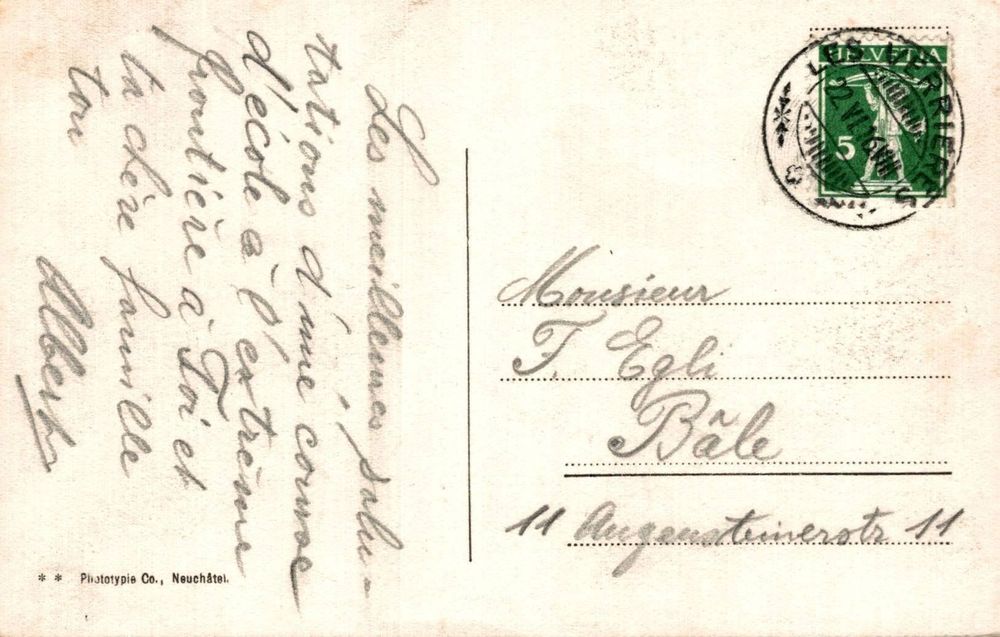 Les meilleures salu-
tations d'une course
d'école à l'extrême
frontière à Toi et
ta chère famille
ton
Albert
HELVETIA
5
LES VERRIERES
22 VI
Monsieur
F. Egli
Bâle
11 Augensteinerstr 11
* * Phototypie Co., Neuchâtel.